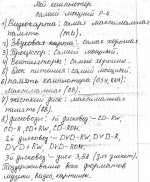 Мой компьютер
самый мощный P-4
1) Видеокарта: самая максимальная
память (mb).
2) Звуковая карта: самая хорошая.
3) Процессор: самый мощный.
4) Вентиляторы: самые хорошие.
5) Блок питания: самый мощный.
6) память компьютера (ОЗУ, RAM):
Максимальная (GB).
7) жесткий диск: максимальная
память (GB).
8) дисководы: 1й дисковод - CD-RW,
CD-R, CD+RW, CD-ROM,
2й дисковод - DVD-RW, DVD-R,
DVD+RW, DVD-ROM.
3й дисковод - диск 3,5A (для дискет).
Поддерживание всех форматов
музыки, видео, картинок.